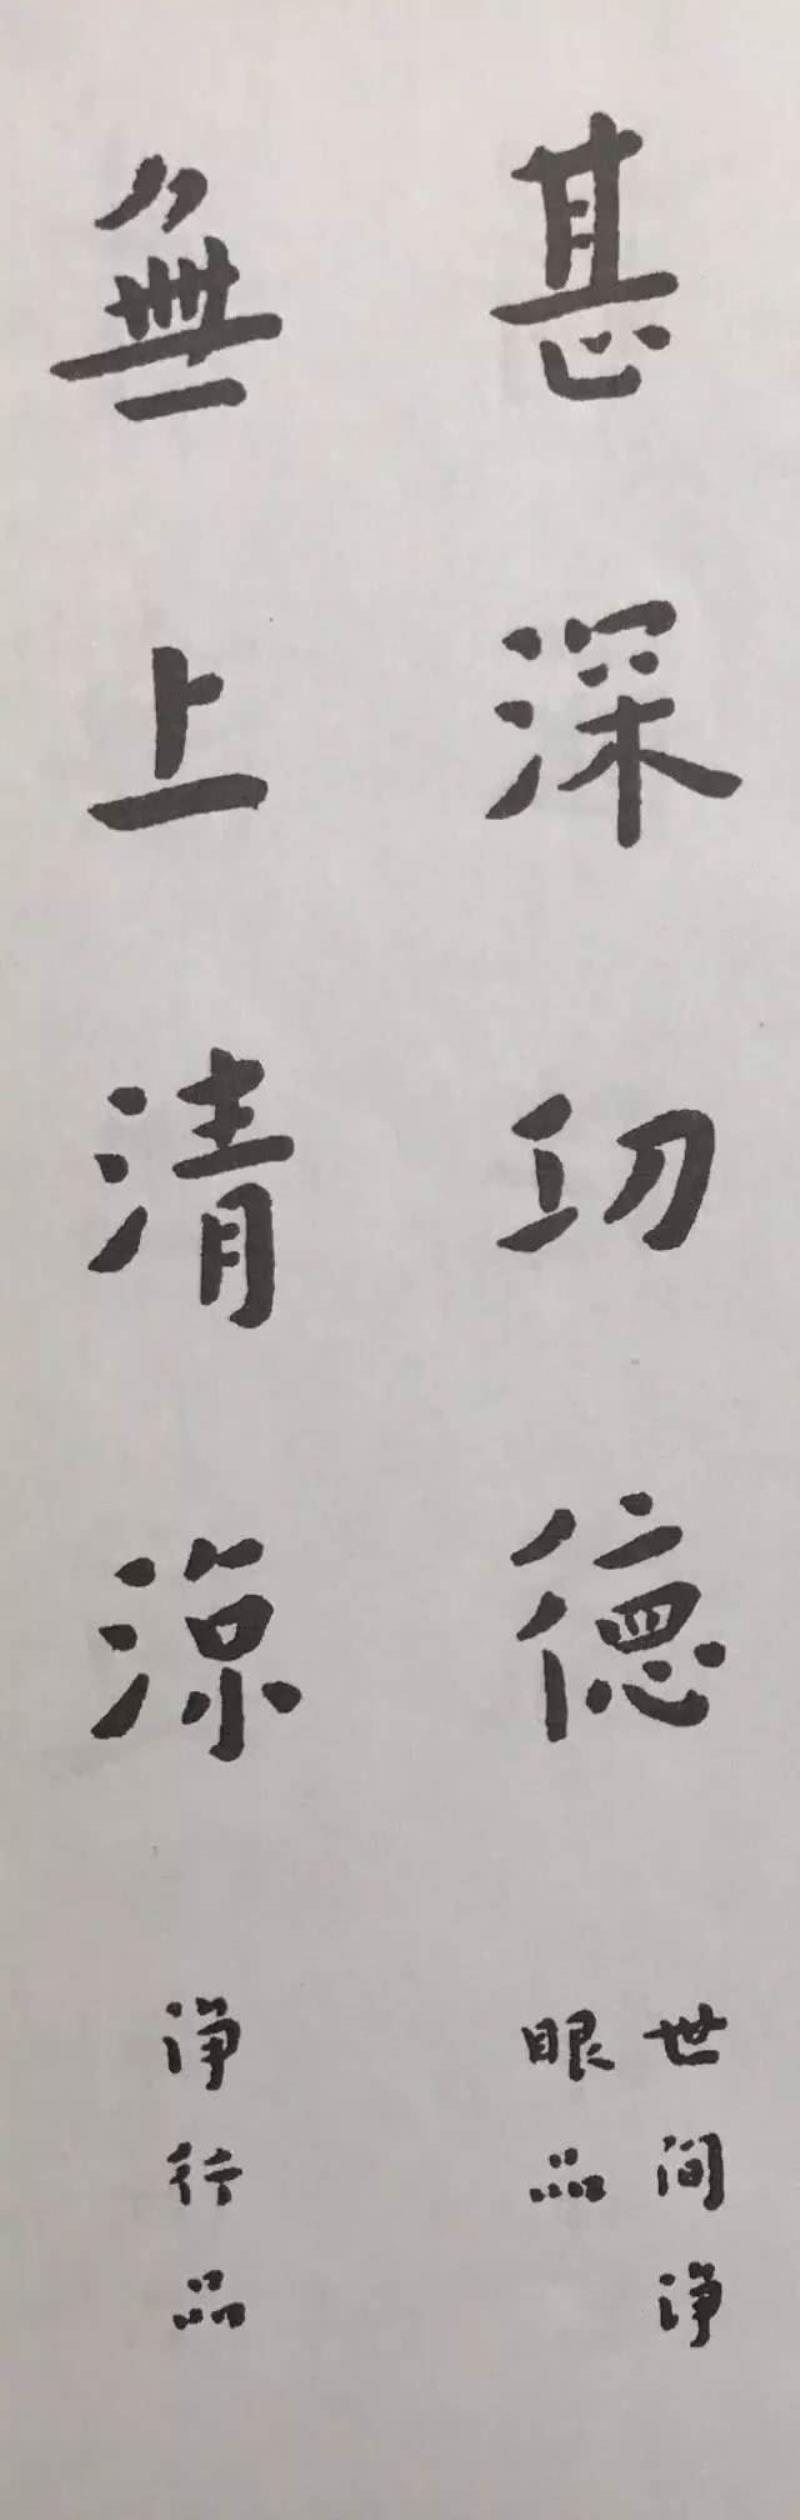 甚深功德
世间淨
眼品
無上清涼
淨行品